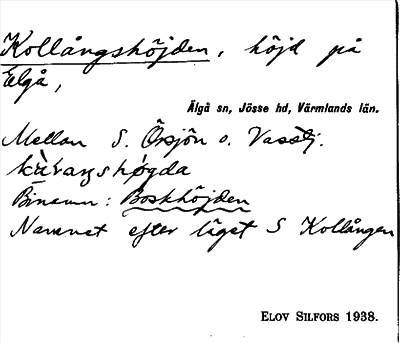 Kollångshöjden, höjd på
Elgå,
Älgå sn, Jösse hd, Värmlands län.
Mellan S. Örsjön o.
högda
Binamn: Boskhöjden
Namnet efter läget S Kollången
ELOV SILFORS 1938.